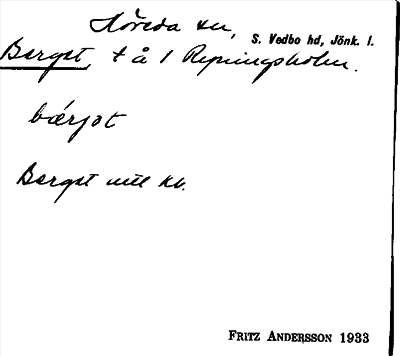 Höreda sn, S. Vedbo hd, Jönk. l.
Berget, t å 1 Repningsholm.
bærjət
Berget utt kb.
FRITZ ANDERSSON 1933